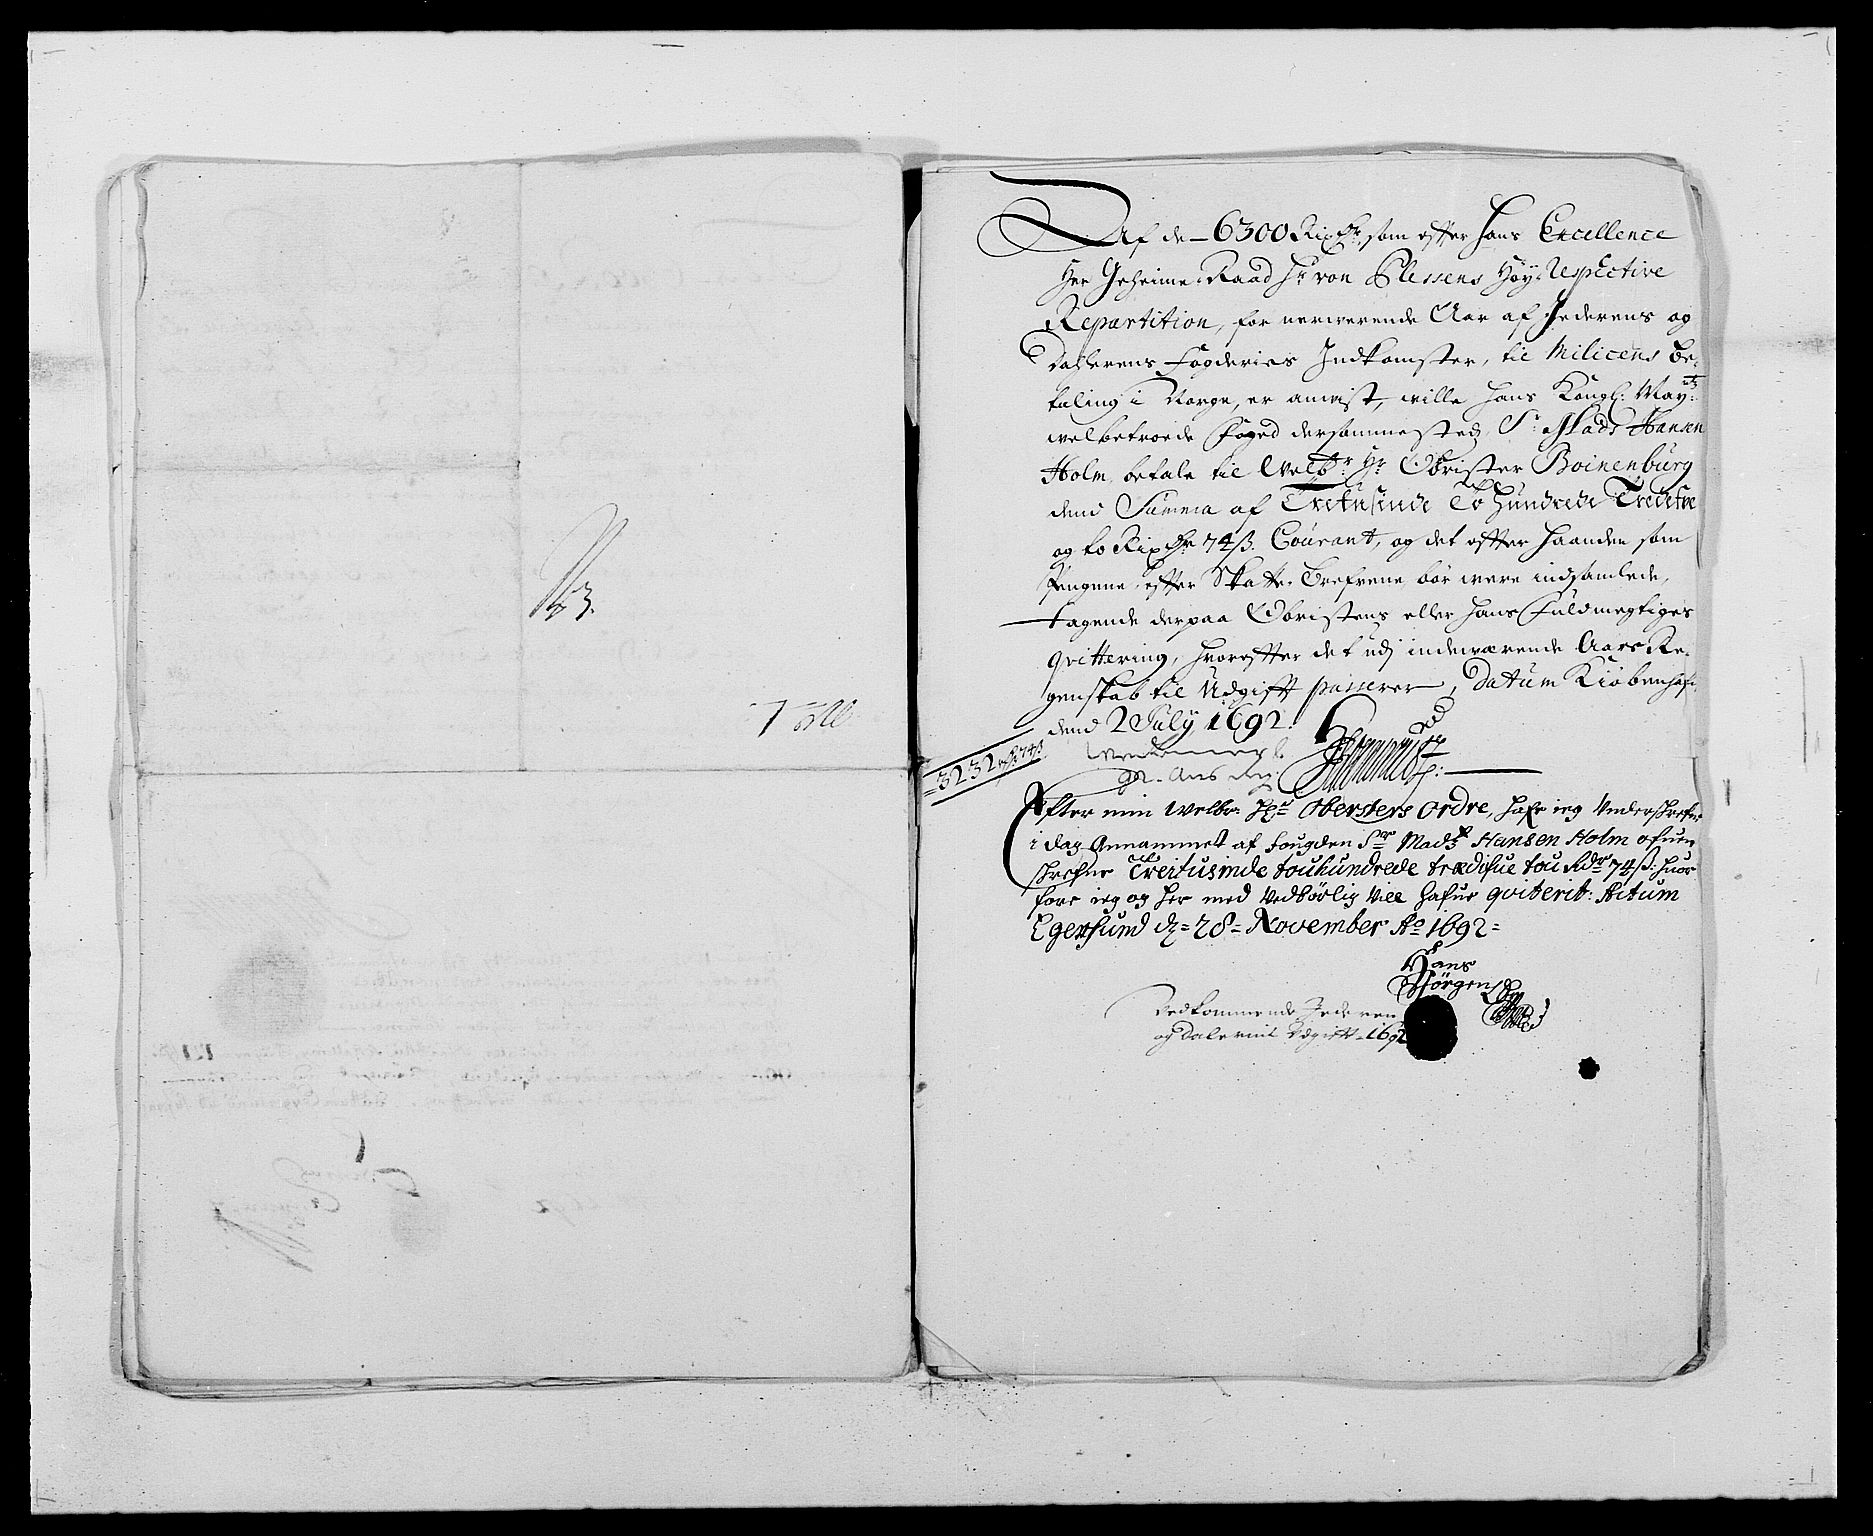 N 3.
Af de 6300 Rixdr, som efter hans Excellence
Her Geheime Raad Hr von Plessens Høy Respective
Repartition, for nerwerende Aar af Jederens og
Dalerens Fogderies Indkomster, til Milicens be-
taling i Norge, er anvist, wille hans Kongl: Mayts
welbetroede Foged dersammesteds Sr Mads Hansen
Holm, betale til Welbr Hr Obrister Boinenburg
dend Summa af Tretusinde To hundrede Tredeive
og to Rixdr 74 ß. Courant, og det efter haanden som
Pengene, efter Skatte Brefvene bør were indsamlede,
tagende derpaa Obristens eller hans Fuldmegtiges
qvittering, hvorefter det udj indewærende Aars Re-
genskab til Udgift passerer, Datum Kiøbenhafn
dend 2 July 1692.
=3232 rdr 74 ß
Efter min welbr. Hr Obersters ordre, hafr ieg Underskrefne
i dag Annammet af fougden Sr Mads Hansen Holm ofuen
skrefne Treitusinde touhundrede trædifue tou Rdr 74 ß: huor
fore ieg og her med Vedbørlig Viis hafur qviterit: Actum
Egersund d= 28= November Ao 1692=
Hans
Jørgens
Vedkommende Jederen
og Dalerens Udgift 1692